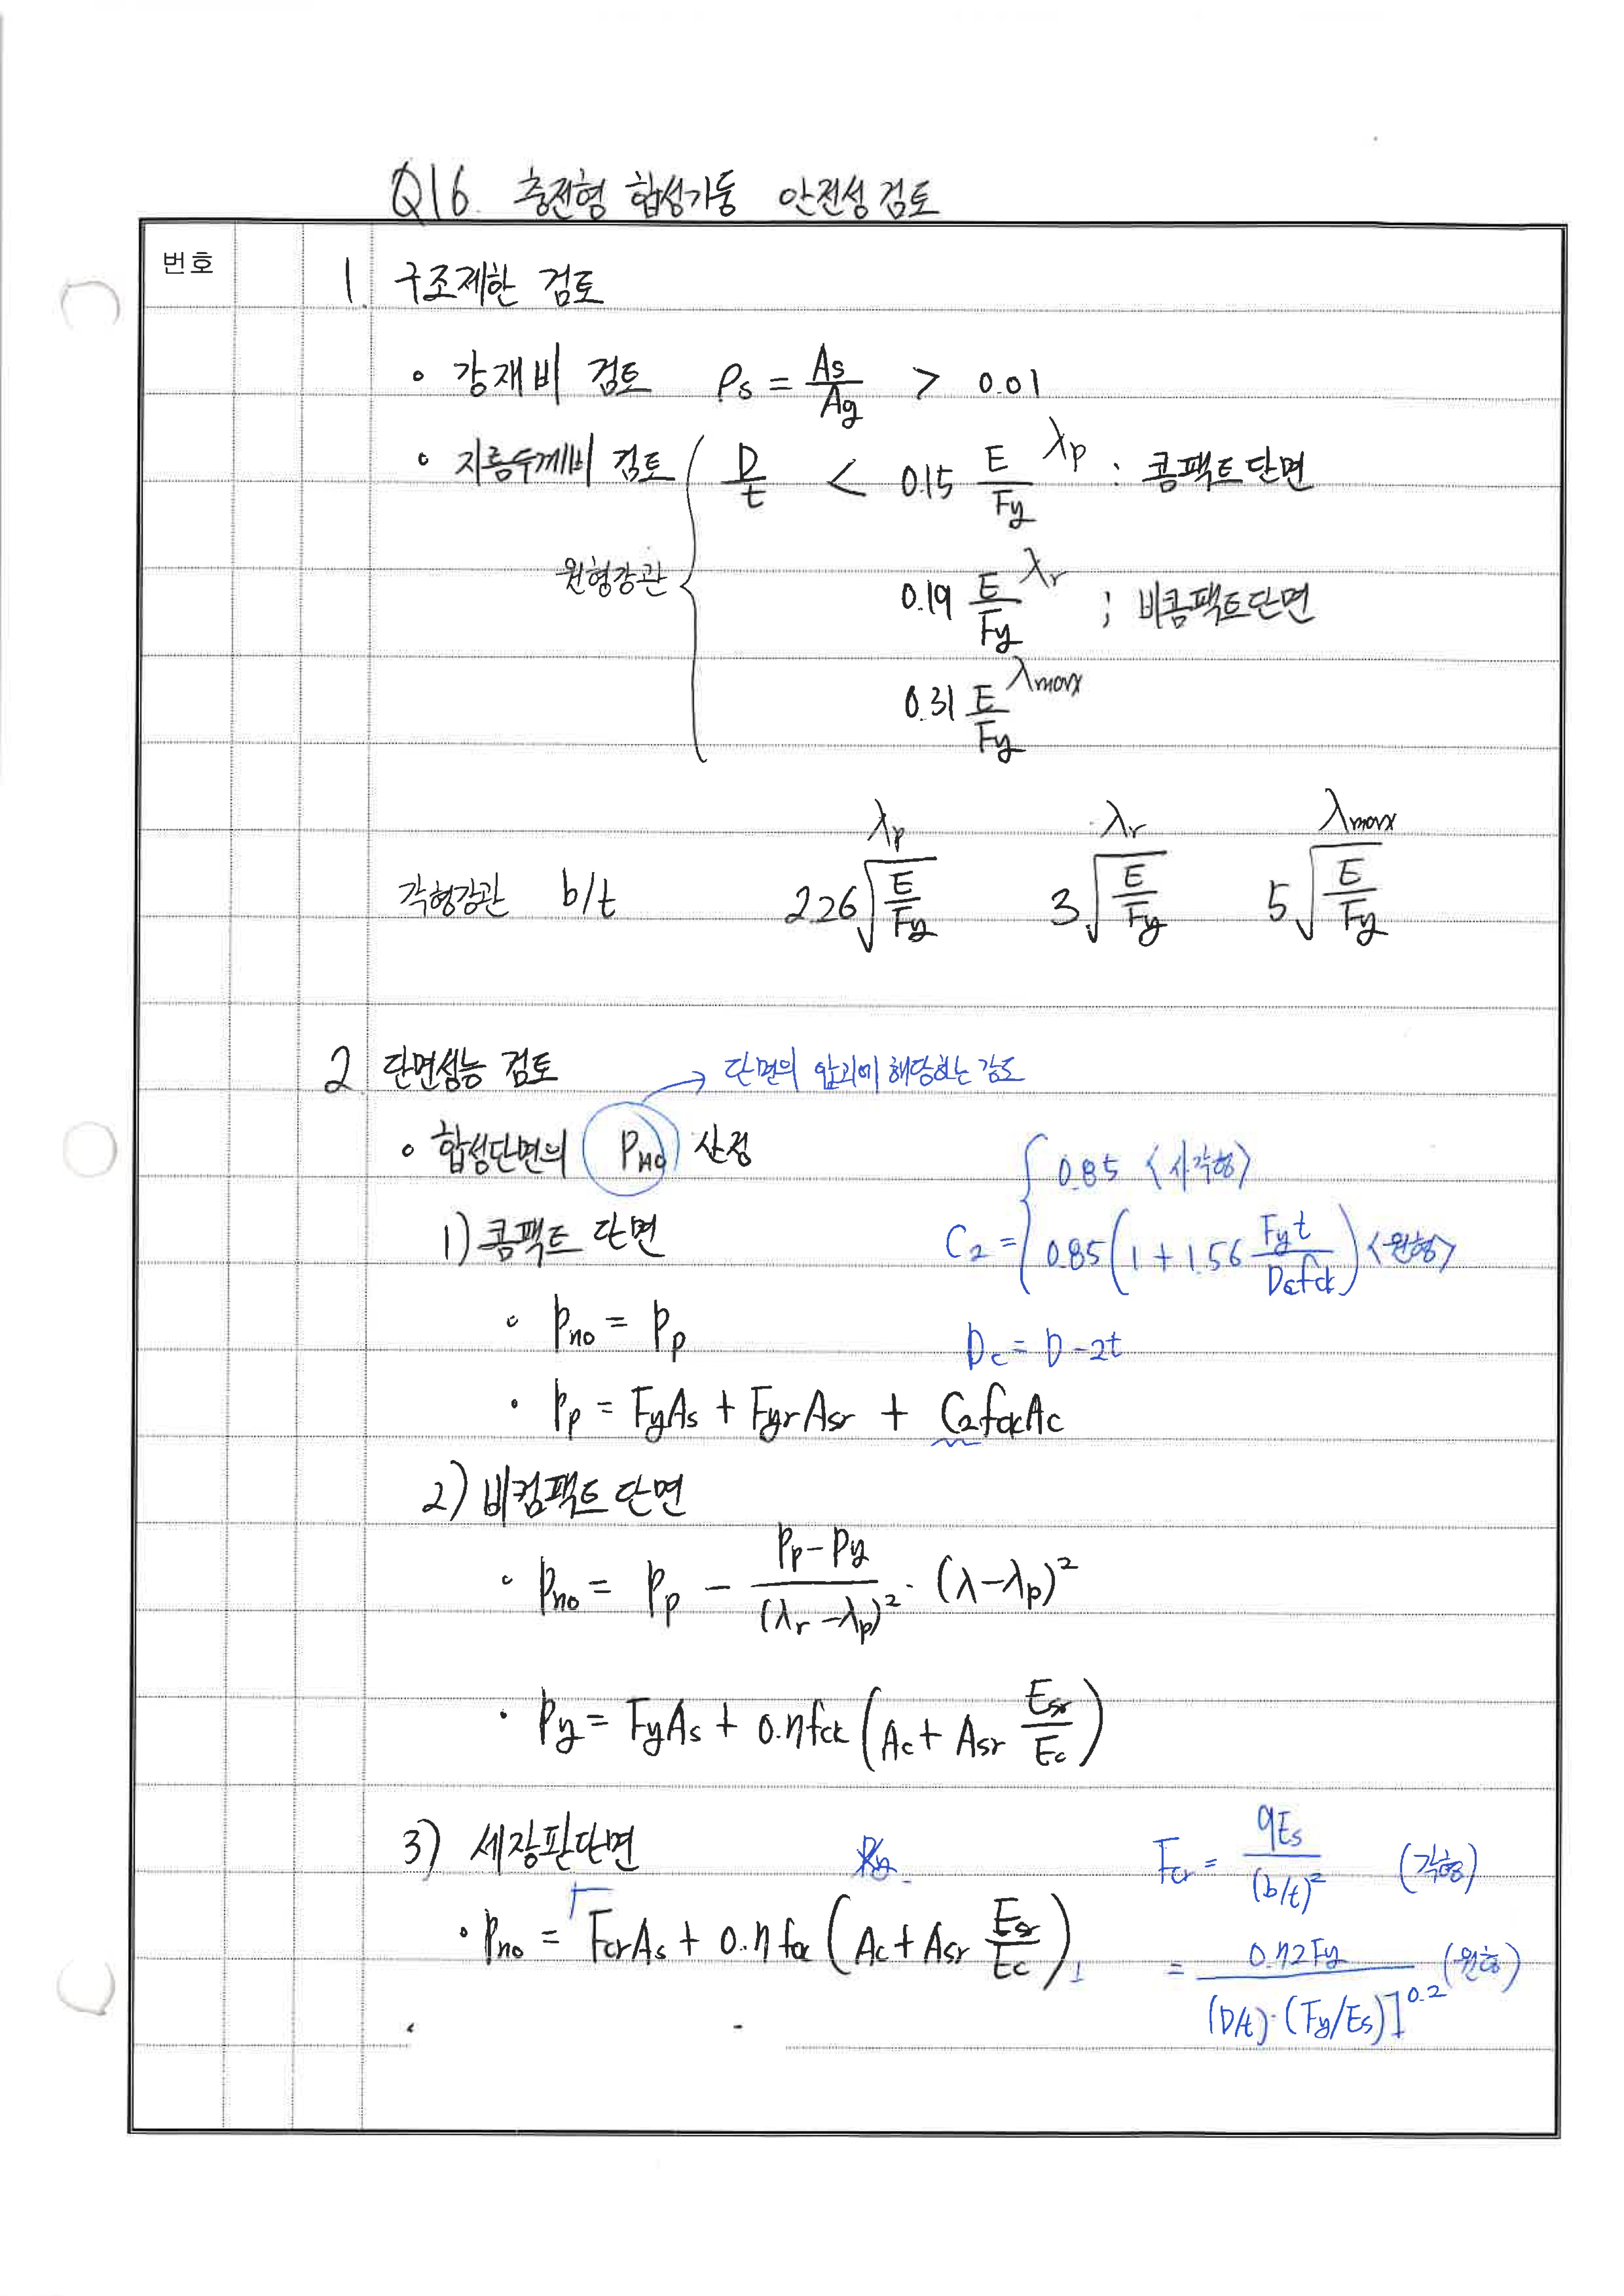 Q16. 충전형 합성기둥 안전성 검토
번호
1. 구조제한 검토
∘ 강재비 검토 ρs = As/Ag > 0.01
∘ 지름두께비 검토 D/t < 0.15 E/Fy λp : 콤팩트단면
원형강관 0.19 E/Fy λr ; 비콤팩트단면
0.31 E/Fy λmax
λp λr λmax
각형강관 b/t 2.26√(E/Fy) 3√(E/Fy) 5√(E/Fy)
2. 단면성능 검토 → 단면의 압괴에 해당하는 강도
∘ 합성단면의 Pno 산정
C2 = { 0.85 <사각형>
0.85(1 + 1.56 Fyt/Dcfck) <원형>
1) 콤팩트 단면
∘ Pno = Pp
Dc = D - 2t
· Pp = FyAs + FyrAsr + C2fckAc
2) 비컴팩트단면
∘ Pno = Pp - (Pp - Py)/(λr - λp)² · (λ - λp)²
· Py = FyAs + 0.7fck(Ac + Asr Esr/Ec)
3) 세장판단면
Fcr = 9Es/(b/t)² (각형)
· Pno = FcrAs + 0.7fck(Ac + Asr Esr/Ec)
= 0.72Fy/(D/t)·(Fy/Es)]^0.2 (원형)